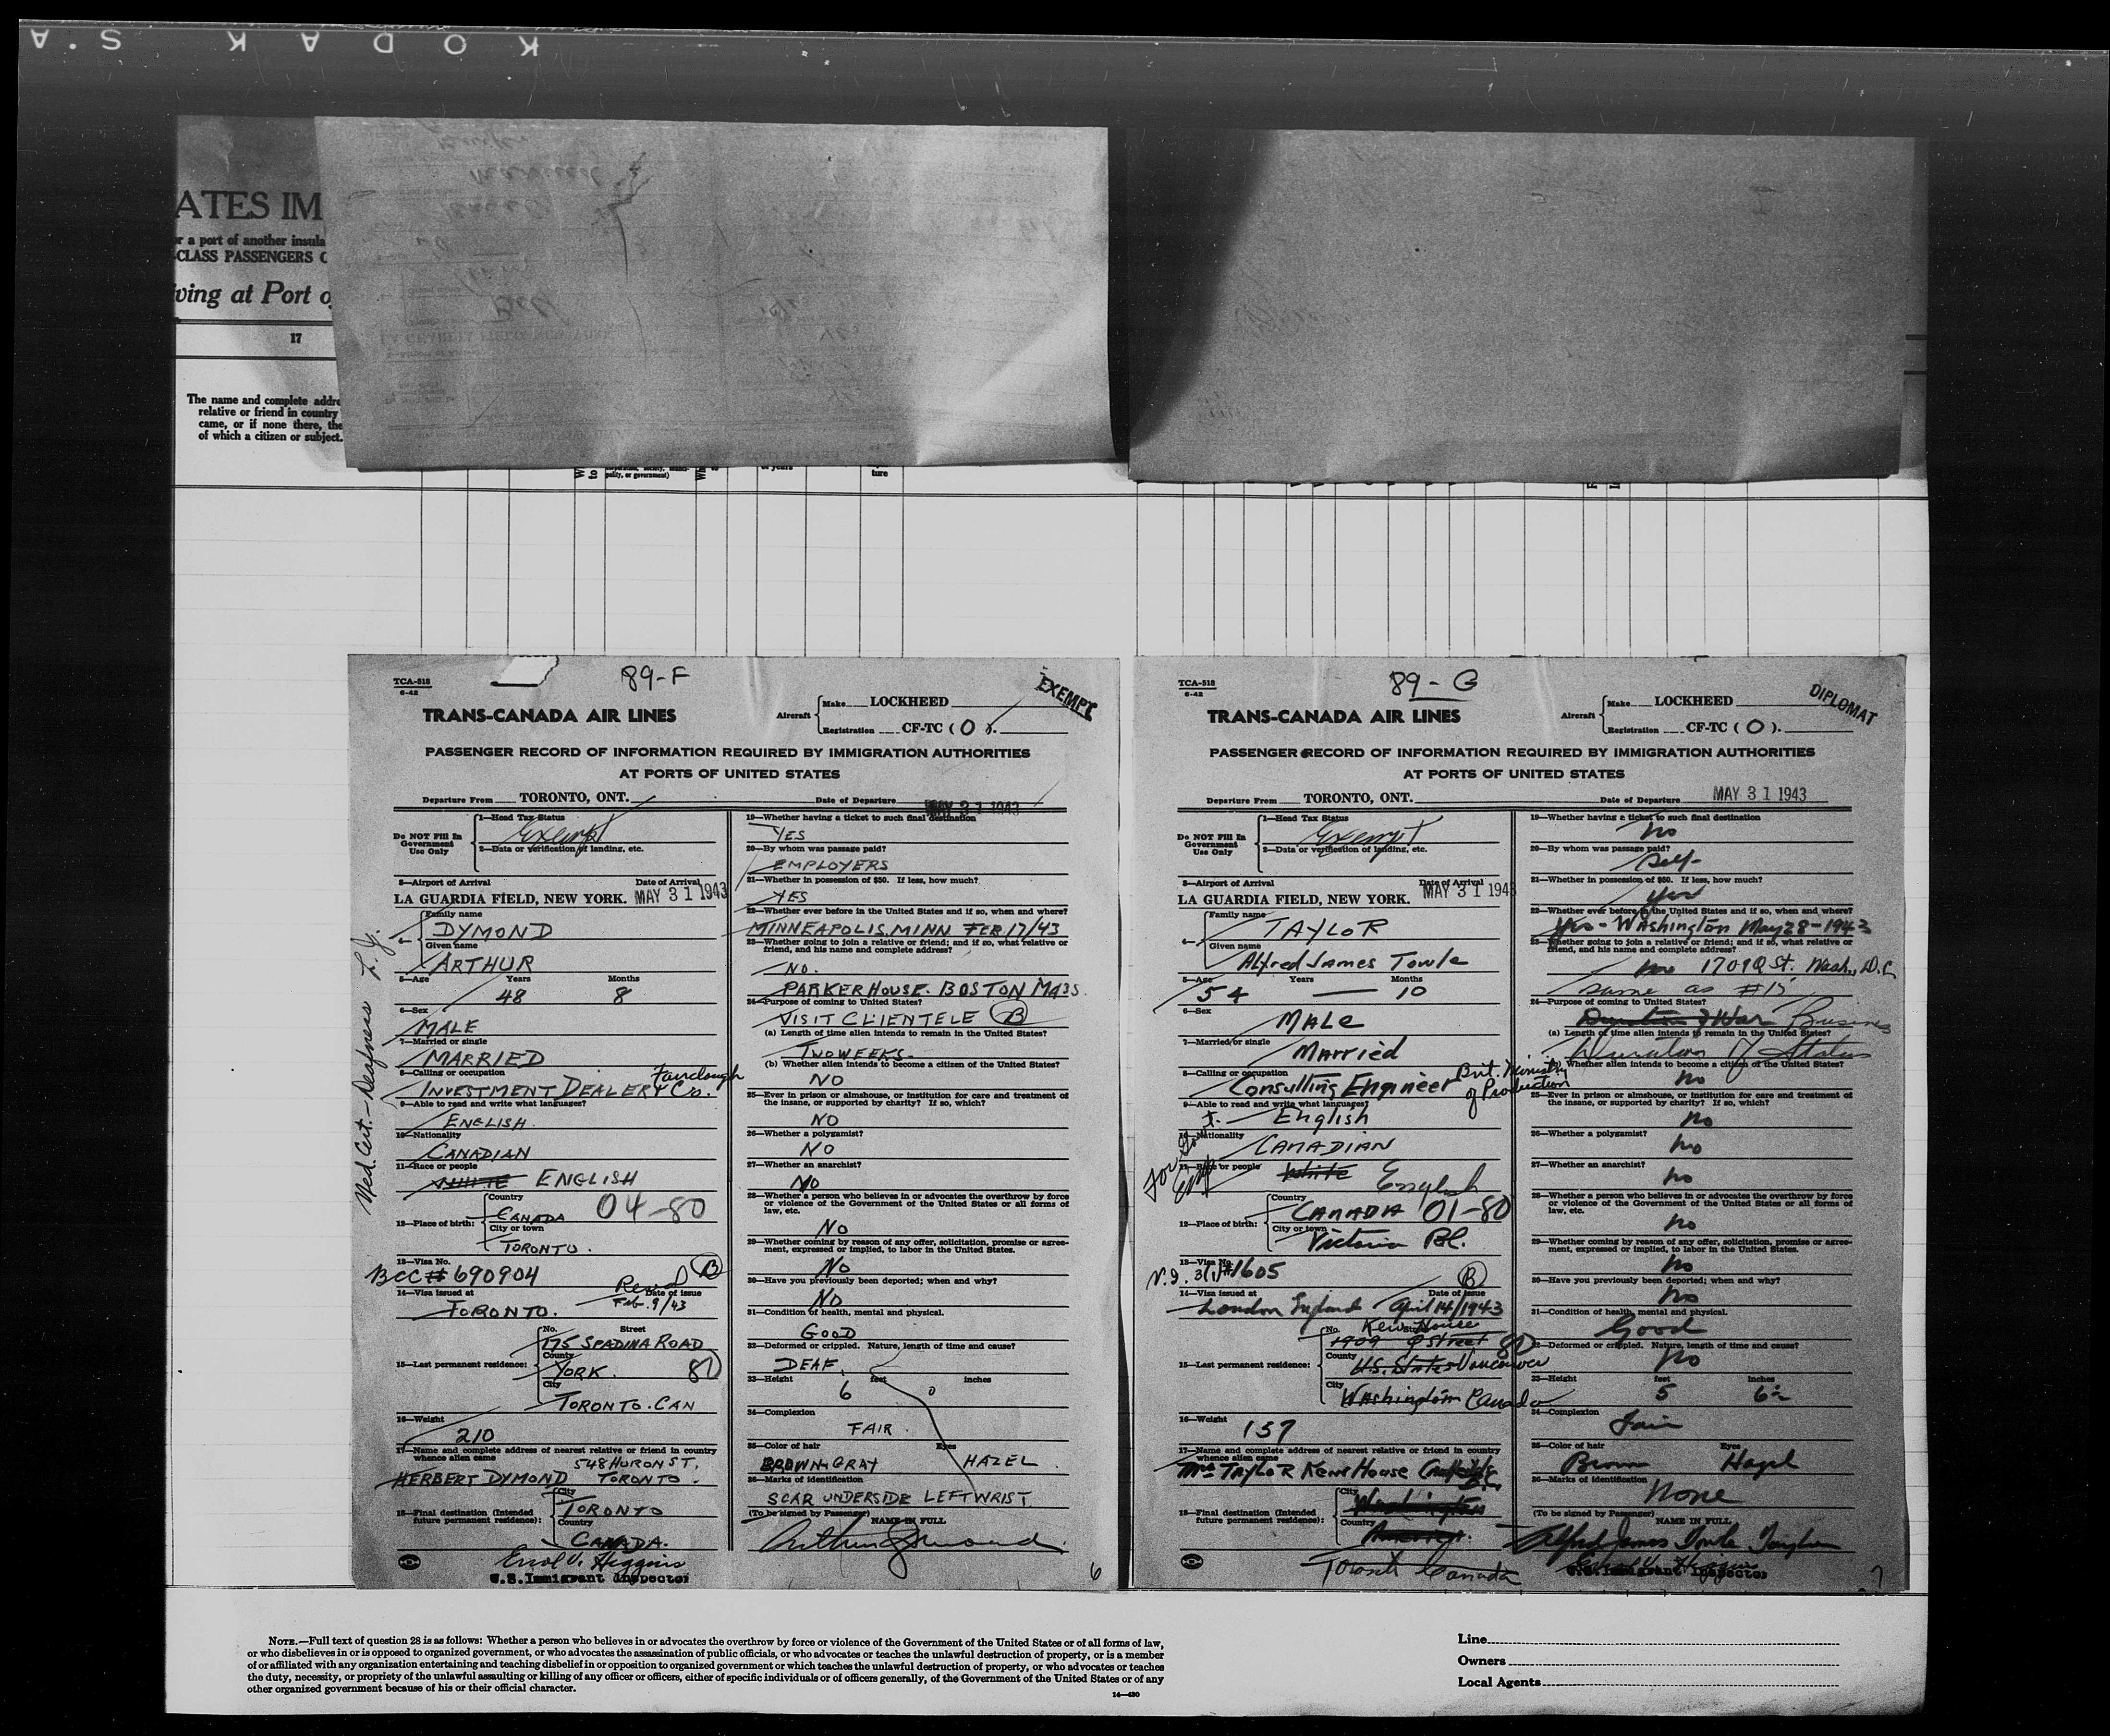 KODAK S.A
ATES IM
r a port of another insula
-CLASS PASSENGERS O
iving at Port o
17
The name and complete addre
relative or friend in country
came, or if none there, the
of which a citizen or subject.
pality, or government)
of years
ture
TCA-518
6-42
89-F
EXEMPT
TRANS-CANADA AIR LINES
Aircraft
Make LOCKHEED
Registration CF-TC ( O ).
PASSENGER RECORD OF INFORMATION REQUIRED BY IMMIGRATION AUTHORITIES
AT PORTS OF UNITED STATES
Departure From TORONTO, ONT.
Date of Departure MAY 31 1943
Do NOT Fill In
Government
Use Only
1—Head Tax Status
Exempt
2—Data or verification of landing, etc.
3—Airport of Arrival
Date of Arrival
LA GUARDIA FIELD, NEW YORK. MAY 31 1943
4—
Family name
DYMOND
Given name
ARTHUR
5—Age Years Months
48 8
6—Sex
MALE
7—Married or single
MARRIED
8—Calling or occupation
INVESTMENT DEALER Fairclough & Co.
9—Able to read and write what languages?
ENGLISH.
10—Nationality
CANADIAN
11—Race or people
WHITE ENGLISH
12—Place of birth:
Country
CANADA 04-80
City or town
TORONTO.
13—Visa No.
BCC # 690904 B
14—Visa issued at Date of issue
TORONTO. Feb. 9/43
15—Last permanent residence:
No. Street
175 SPADINA ROAD
County
YORK. 80
City
TORONTO. CAN
16—Weight
210
17—Name and complete address of nearest relative or friend in country
whence alien came
548 HURON ST.
HERBERT DYMOND TORONTO.
18—Final destination (Intended
future permanent residence):
City
TORONTO
Country
CANADA.
Errol V. Higgins
U.S. Immigrant Inspector
Med. Cert. - Deafness
19—Whether having a ticket to such final destination
YES
20—By whom was passage paid?
EMPLOYERS
21—Whether in possession of $50. If less, how much?
YES
22—Whether ever before in the United States and if so, when and where?
MINNEAPOLIS, MINN FEB 17/43
23—Whether going to join a relative or friend; and if so, what relative or
friend, and his name and complete address?
NO.
PARKER HOUSE. BOSTON MASS.
24—Purpose of coming to United States?
VISIT CLIENTELE B
(a) Length of time alien intends to remain in the United States?
TWO WEEKS.
(b) Whether alien intends to become a citizen of the United States?
NO
25—Ever in prison or almshouse, or institution for care and treatment of
the insane, or supported by charity? If so, which?
NO
26—Whether a polygamist?
NO
27—Whether an anarchist?
NO
28—Whether a person who believes in or advocates the overthrow by force
or violence of the Government of the United States or all forms of
law, etc.
NO
29—Whether coming by reason of any offer, solicitation, promise or agree-
ment, expressed or implied, to labor in the United States.
NO
30—Have you previously been deported; when and why?
NO
31—Condition of health, mental and physical.
GOOD
32—Deformed or crippled. Nature, length of time and cause?
DEAF.
33—Height feet inches
6 0
34—Complexion
FAIR.
35—Color of hair Eyes
BROWN-GRAY HAZEL.
36—Marks of identification
SCAR UNDERSIDE LEFT WRIST
(To be signed by Passenger)
NAME IN FULL
Arthur Dymond
6
TCA-518
6-42
89-G
DIPLOMAT
TRANS-CANADA AIR LINES
Aircraft
Make LOCKHEED
Registration CF-TC ( O ).
PASSENGER RECORD OF INFORMATION REQUIRED BY IMMIGRATION AUTHORITIES
AT PORTS OF UNITED STATES
Departure From TORONTO, ONT.
Date of Departure MAY 31 1943
Do NOT Fill In
Government
Use Only
1—Head Tax Status
Exempt
2—Data or verification of landing, etc.
3—Airport of Arrival
Date of Arrival
LA GUARDIA FIELD, NEW YORK. MAY 31 1943
4—
Family name
TAYLOR
Given name
Alfred James Towle
5—Age Years Months
54 — 10
6—Sex
MALE
7—Married or single
Married
8—Calling or occupation
Consulting Engineer Brit. Ministry of Production
9—Able to read and write what languages?
English
10—Nationality
CANADIAN
11—Race or people
White English
12—Place of birth:
Country
CANADA 01-80
City or town
Victoria BC.
13—Visa No.
3(1) #1605 B
14—Visa issued at Date of issue
London England April 14/1943
15—Last permanent residence:
No. Street
Kew House
1709 Q Street 80
County
U.S. States Vancouver
City
Washington Canada
16—Weight
157
17—Name and complete address of nearest relative or friend in country
whence alien came
Mrs TAYLOR Kew House
18—Final destination (Intended
future permanent residence):
City
Washington
Country
America.
Toronto Canada
19—Whether having a ticket to such final destination
No
20—By whom was passage paid?
Self-
21—Whether in possession of $50. If less, how much?
Yes
22—Whether ever before in the United States and if so, when and where?
Yes - Washington May 28-1943
23—Whether going to join a relative or friend; and if so, what relative or
friend, and his name and complete address?
no 1709 Q St. Wash., D.C.
same as #15
24—Purpose of coming to United States?
Duration of War Business
(a) Length of time alien intends to remain in the United States?
Duration of Status
(b) Whether alien intends to become a citizen of the United States?
no
25—Ever in prison or almshouse, or institution for care and treatment of
the insane, or supported by charity? If so, which?
no
26—Whether a polygamist?
no
27—Whether an anarchist?
no
28—Whether a person who believes in or advocates the overthrow by force
or violence of the Government of the United States or all forms of
law, etc.
no
29—Whether coming by reason of any offer, solicitation, promise or agree-
ment, expressed or implied, to labor in the United States.
no
30—Have you previously been deported; when and why?
no
31—Condition of health, mental and physical.
Good
32—Deformed or crippled. Nature, length of time and cause?
no
33—Height feet inches
5 6½
34—Complexion
Fair
35—Color of hair Eyes
Brown Hazel
36—Marks of identification
None
(To be signed by Passenger)
NAME IN FULL
Alfred James Towle Taylor
Errol V. Higgins
U.S. Immigrant Inspector
7
NOTE.—Full text of question 28 is as follows: Whether a person who believes in or advocates the overthrow by force or violence of the Government of the United States or of all forms of law,
or who disbelieves in or is opposed to organized government, or who advocates the assassination of public officials, or who advocates or teaches the unlawful destruction of property, or is a member
of or affiliated with any organization entertaining and teaching disbelief in or opposition to organized government or which teaches the unlawful destruction of property, or who advocates or teaches
the duty, necessity, or propriety of the unlawful assaulting or killing of any officer or officers, either of specific individuals or of officers generally, of the Government of the United States or of any
other organized government because of his or their official character.
14—430
Line
Owners
Local Agents